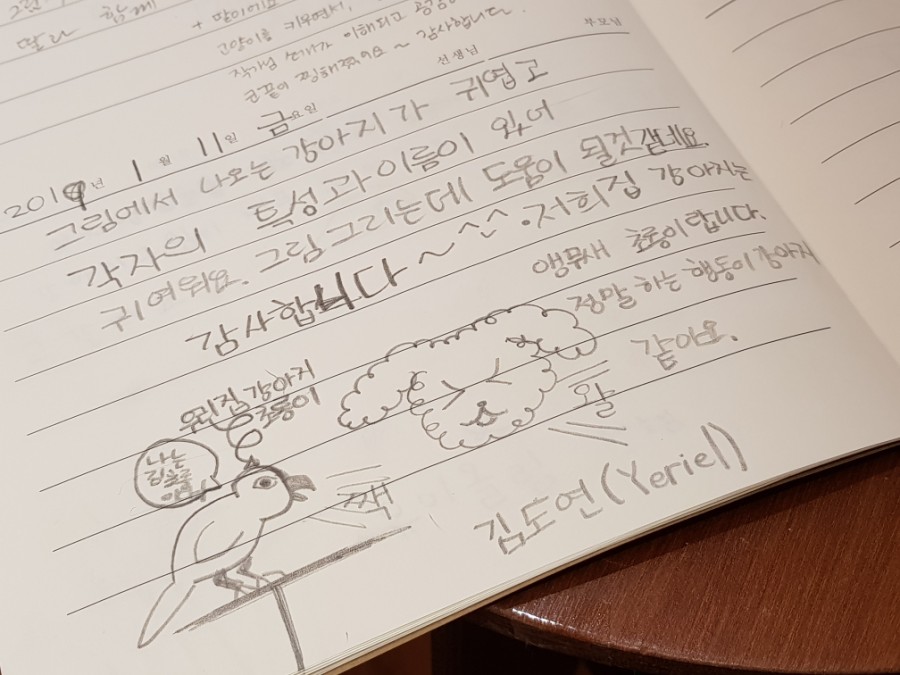 딸과 함께
+ 딸이에요
고양이를 키우면서,
작가님 선배가 이해되고 공감
코끝이 찡해졌어요 ~ 감사합니다.
선생님 부모님
2019년 1월 11일 금요일
그림에서 나오는 강아지가 귀엽고
각자의 특성과 이름이 있어
귀여워요. 그림 그리는데 도움이 될것 같네요.
감사합니다 ~ ^^ · 저희집 강아지는
앵무새 초롱이랍니다.
정말 하는 행동이 강아지
같아요.
우리집 강아지
초롱이
나는
김초롱
왈
짹
김도연 (Yeriel)